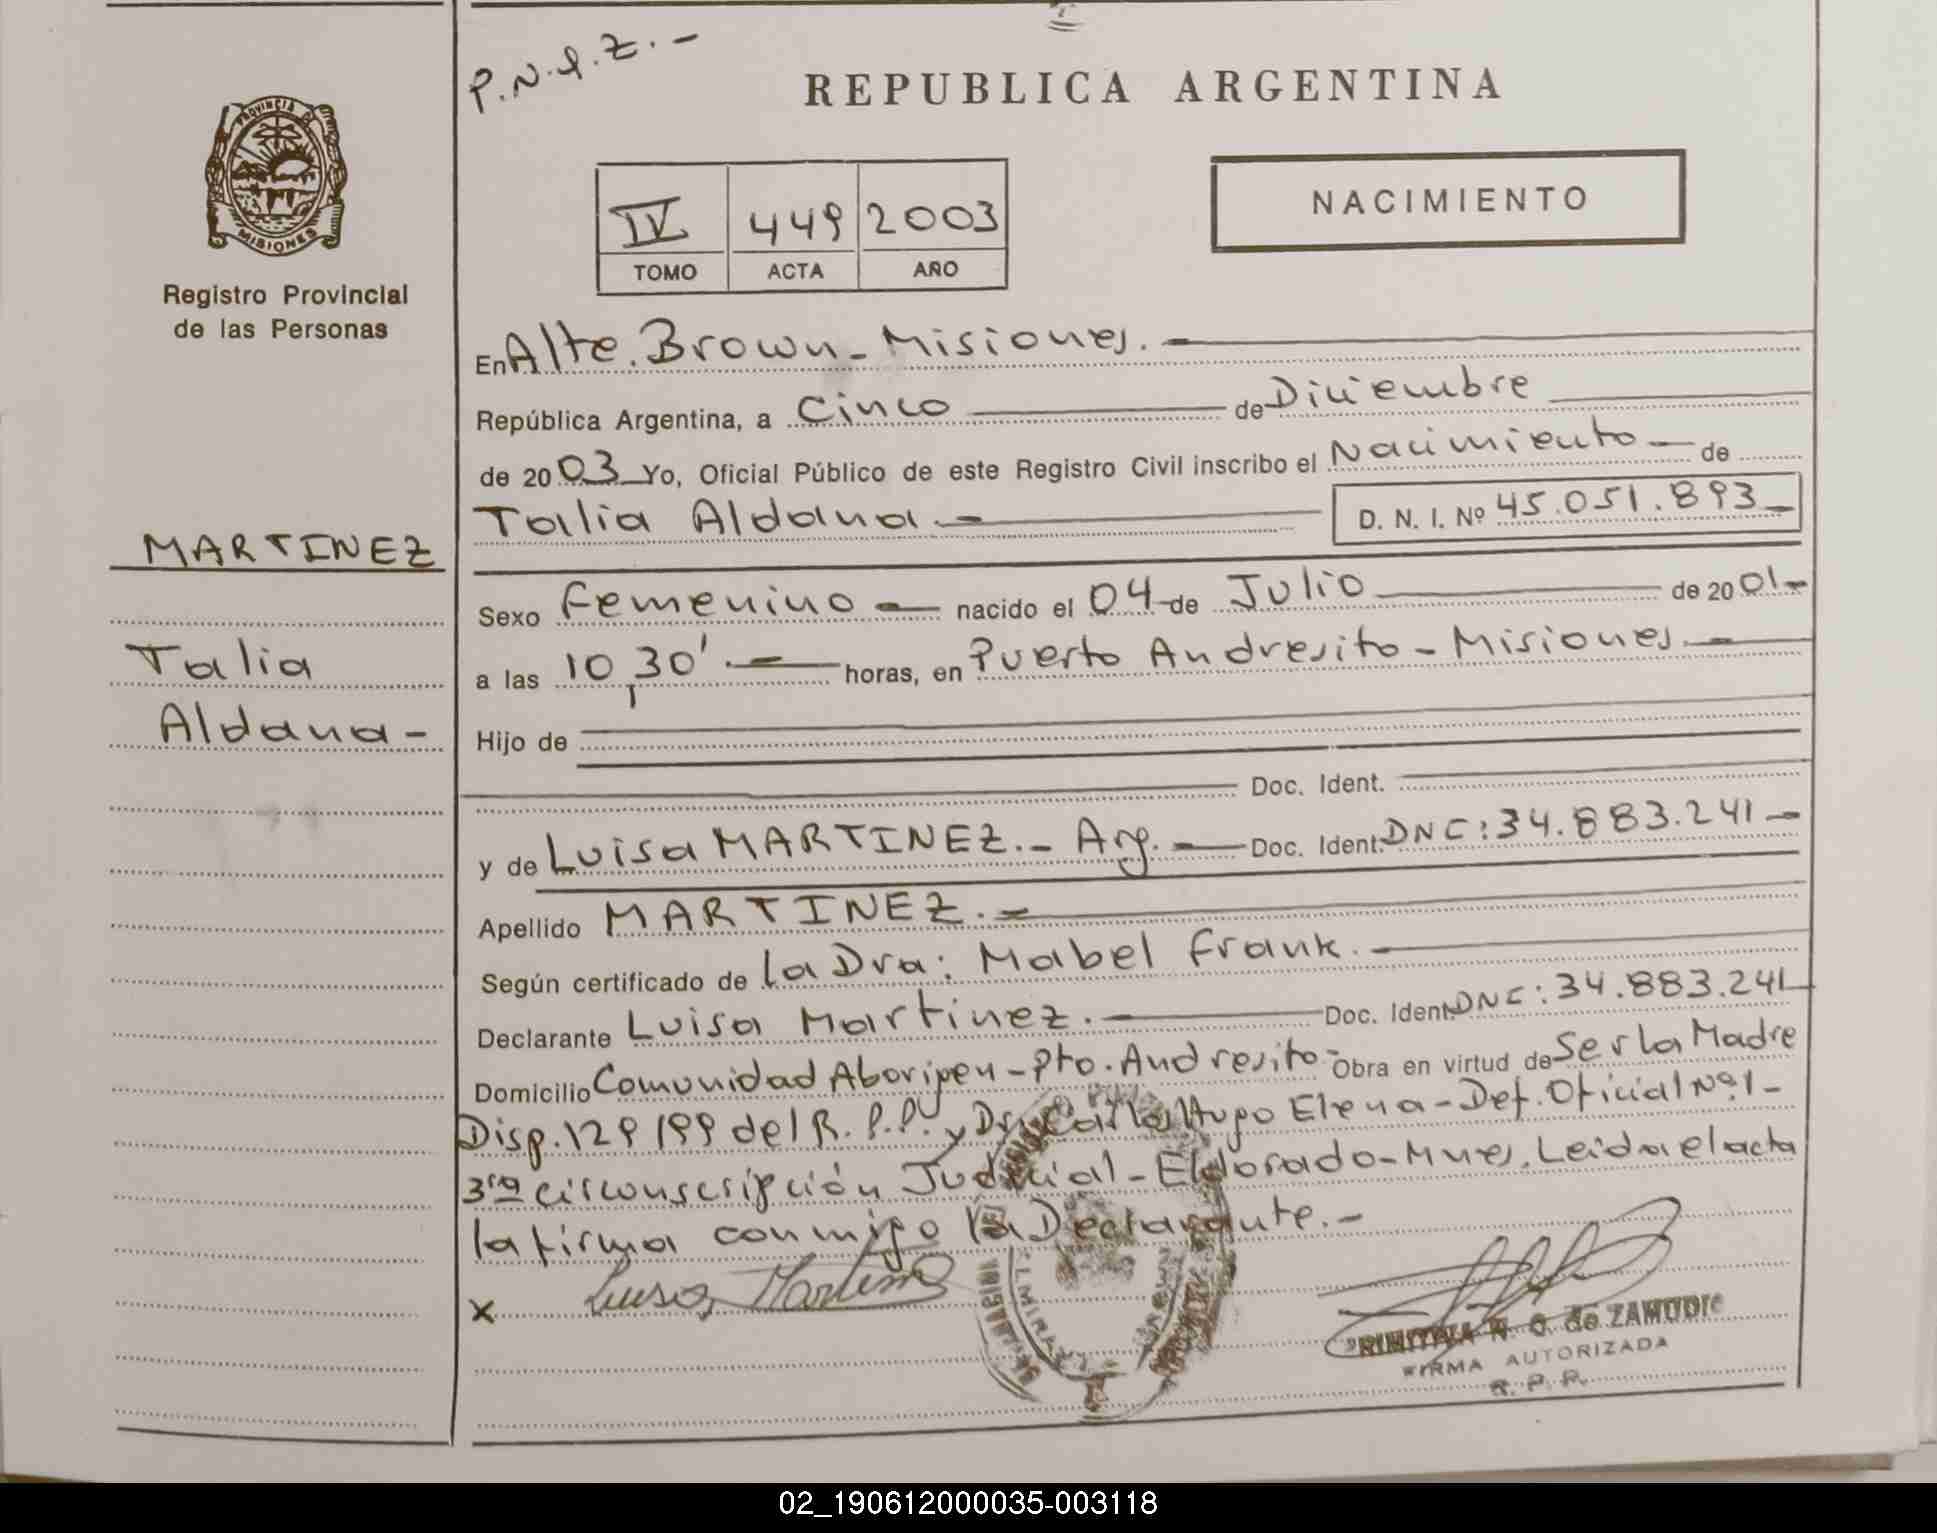 P.N.I.Z.-
REPUBLICA ARGENTINA
PROVINCIA D
MISIONES
Registro Provincial
de las Personas
IV 449 2003
TOMO ACTA AÑO
NACIMIENTO
En Alte. Brown - Misiones. -
República Argentina, a Cinco de Diciembre
de 2003 Yo, Oficial Público de este Registro Civil inscribo el Nacimiento - de
Talia Aldana - D. N. I. Nº 45.051.893 -
MARTINEZ
Talia
Aldana -
Sexo Femenino - nacido el 04 de Julio de 2001 -
a las 10,30' . - horas, en Puerto Andresito - Misiones. -
Hijo de
Doc. Ident.
y de Luisa MARTINEZ. - Arg. - Doc. Ident. DNI: 34.883.241 -
Apellido MARTINEZ. -
Según certificado de la Dra: Mabel Frank. -
Declarante Luisa Martinez. - Doc. Ident. DNI: 34.883.241
Domicilio Comunidad Aborigen - Pto. Andresito - Obra en virtud de Ser la Madre
Disp. 129/99 del R.P.P. y Dr. Carlos Hugo Elena - Def. Oficial Nº 1 -
3ra circunscripción Judicial - Eldorado - Mnes. Leida el acta
la firma conmigo la Declarante. -
x Luisa Martinez
N. O. de ZAMUDIO
FIRMA AUTORIZADA
R. P. P.
02_190612000035-003118